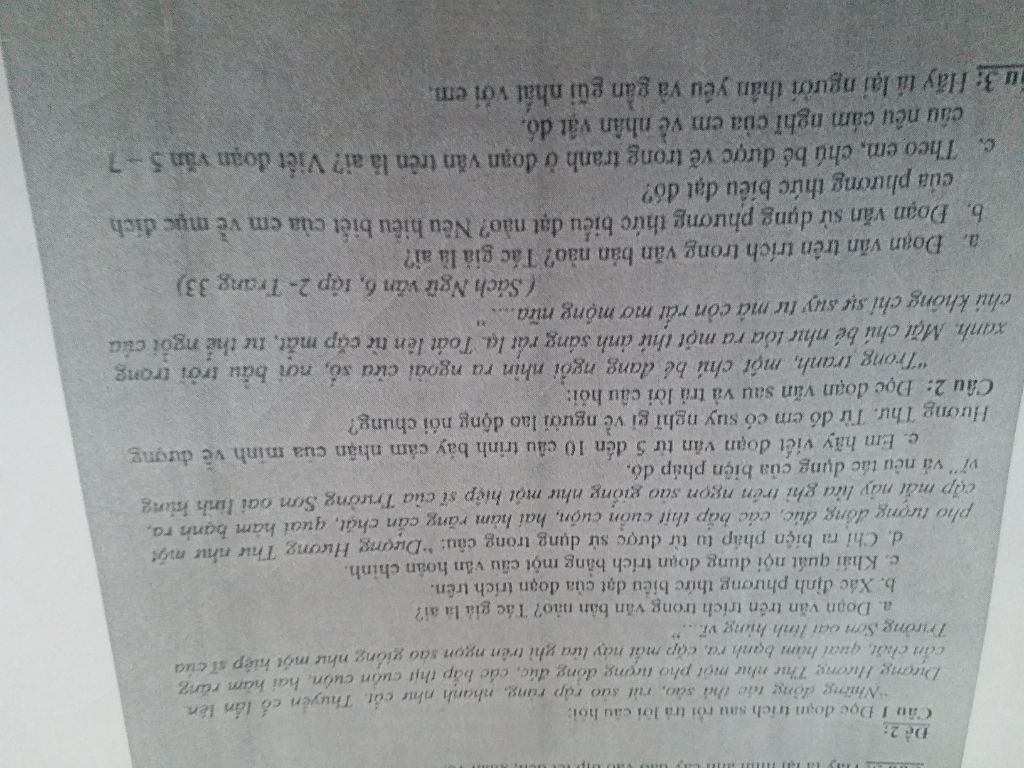 Hãy tả lại hình ảnh cây đào vào dịp tết đến, xuân
Đề 2:
Câu 1 Đọc đoạn trích sau rồi trả lời câu hỏi:
"Những động tác thả sào, rút sào rập ràng nhanh như cắt. Thuyền cố lấn lên.
Dượng Hương Thư như một pho tượng đồng đúc, các bắp thịt cuồn cuộn, hai hàm răng
cắn chặt, quai hàm bạnh ra, cặp mắt nảy lửa ghì trên ngọn sào giống như một hiệp sĩ của
Trường Sơn oai linh hùng vĩ..."
a. Đoạn văn trên trích trong văn bản nào? Tác giả là ai?
b. Xác định phương thức biểu đạt của đoạn trích trên.
c. Khái quát nội dung đoạn trích bằng một câu văn hoàn chỉnh.
d. Chỉ ra biện pháp tu từ được sử dụng trong câu: "Dượng Hương Thư như một
pho tượng đồng đúc, các bắp thịt cuồn cuộn, hai hàm răng cắn chặt, quai hàm bạnh ra,
cặp mắt nảy lửa ghì trên ngọn sào giống như một hiệp sĩ của Trường Sơn oai linh hùng
vĩ" và nêu tác dụng của biện pháp đó.
e. Em hãy viết đoạn văn từ 5 đến 10 câu trình bày cảm nhận của mình về dượng
Hương Thư. Từ đó em có suy nghĩ gì về người lao động nói chung?
Câu 2: Đọc đoạn văn sau và trả lời câu hỏi:
"Trong tranh, một chú bé đang ngồi nhìn ra ngoài cửa sổ, nơi bầu trời trong
xanh. Mặt chú bé như tỏa ra một thứ ánh sáng rất lạ. Toát lên từ cặp mắt, tư thế ngồi của
chú không chỉ sự suy tư mà còn rất mơ mộng nữa...."
( Sách Ngữ văn 6, tập 2- Trang 33)
a. Đoạn văn trên trích trong văn bản nào? Tác giả là ai?
b. Đoạn văn sử dụng phương thức biểu đạt nào? Nêu hiểu biết của em về mục đích
của phương thức biểu đạt đó?
c. Theo em, chú bé được vẽ trong tranh ở đoạn văn trên là ai? Viết đoạn văn 5 – 7
câu nêu cảm nghĩ của em về nhân vật đó.
âu 3: Hãy tả lại người thân yêu và gần gũi nhất với em.